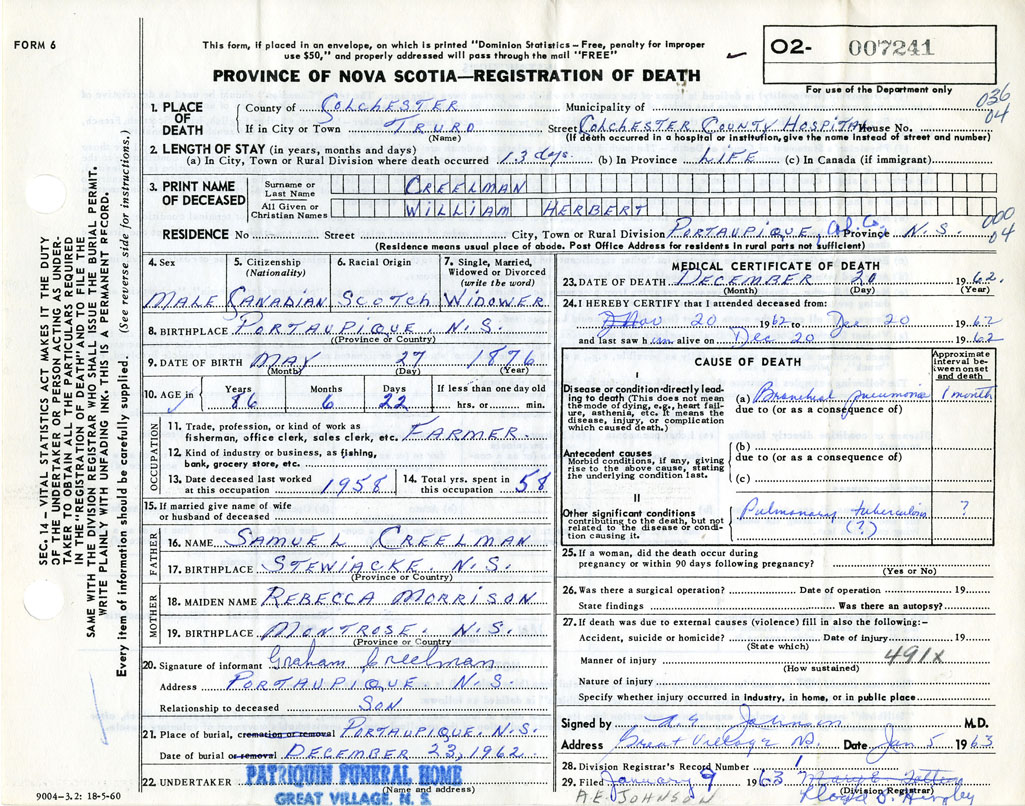 FORM 6
This form, if placed in an envelope, on which is printed "Dominion Statistics – Free, penalty for improper
use $50," and properly addressed will pass through the mail "FREE"
O2- 007241
PROVINCE OF NOVA SCOTIA—REGISTRATION OF DEATH
For use of the Department only
036
04
1. PLACE OF DEATH
County of COLCHESTER Municipality of
If in City or Town TRURO Street COLCHESTER COUNTY HOSPITAL House No.
(Name) (If death occurred in a hospital or institution, give the name instead of street and number)
2. LENGTH OF STAY (in years, months and days)
(a) In City, Town or Rural Division where death occurred 13 days. (b) In Province LIFE (c) In Canada (if immigrant)
3. PRINT NAME OF DECEASED
Surname or Last Name CREELMAN
All Given or Christian Names WILLIAM HERBERT
000
04
RESIDENCE No Street City, Town or Rural Division PORTAUPIQUE, Col. Co. Province N.S.
(Residence means usual place of abode. Post Office Address for residents in rural parts not sufficient)
4. Sex 5. Citizenship (Nationality) 6. Racial Origin 7. Single, Married, Widowed or Divorced (write the word)
MALE CANADIAN SCOTCH WIDOWER
8. BIRTHPLACE PORTAUPIQUE, N.S.
(Province or Country)
9. DATE OF BIRTH MAY 27 1876
(Month) (Day) (Year)
10. AGE in Years Months Days If less than one day old
86 6 22 hrs. or min.
OCCUPATION
11. Trade, profession, or kind of work as
fisherman, office clerk, sales clerk, etc. FARMER.
12. Kind of industry or business, as fishing,
bank, grocery store, etc.
13. Date deceased last worked
at this occupation 1958
14. Total yrs. spent in
this occupation 58
15. If married give name of wife
or husband of deceased
FATHER
16. NAME SAMUEL CREELMAN
17. BIRTHPLACE STEWIACKE. N.S.
(Province or Country)
MOTHER
18. MAIDEN NAME REBECCA MORRISON
19. BIRTHPLACE MONTROSE. N.S.
(Province or Country)
20. Signature of informant Graham Creelman
Address PORTAUPIQUE N.S.
Relationship to deceased SON
21. Place of burial, cremation or removal PORTAUPIQUE, N.S.
Date of burial or removal DECEMBER 23, 1962.
22. UNDERTAKER PATRIQUIN FUNERAL HOME
(Name and address)
GREAT VILLAGE, N. S.
9004-3.2: 18-5-60
MEDICAL CERTIFICATE OF DEATH
23. DATE OF DEATH DECEMBER 20 1962.
(Month) (Day) (Year)
24. I HEREBY CERTIFY that I attended deceased from:
Nov 20 1962 to Dec 20 1962
and last saw him alive on Dec 20 1962
CAUSE OF DEATH
Approximate interval between onset and death
I
Disease or condition directly leading to death (This does not mean
the mode of dying, e.g., heart failure, asthenia, etc. It means the
disease, injury, or complication
which caused death.)
(a) Bronchial pneumonia 1 month
due to (or as a consequence of)
Antecedent causes
Morbid conditions, if any, giving
rise to the above cause, stating
the underlying condition last.
(b)
due to (or as a consequence of)
(c)
II
Other significant conditions
contributing to the death, but not
related to the disease or condition causing it.
Pulmonary tuberculosis ?
(?)
25. If a woman, did the death occur during
pregnancy or within 90 days following pregnancy?
(Yes or No)
26. Was there a surgical operation? Date of operation 19
State findings Was there an autopsy?
27. If death was due to external causes (violence) fill in also the following:-
Accident, suicide or homicide? Date of injury 19
(State which)
Manner of injury 491X
(How sustained)
Nature of injury
Specify whether injury occurred in industry, in home, or in public place
Signed by A E Johnson M.D.
Address Great Village NS. Date Jan 5 1963
28. Division Registrar's Record Number 1
29. Filed January 9 1963
(Division Registrar)
A.E. JOHNSON
SEC. 14 – VITAL STATISTICS ACT MAKES IT THE DUTY
OF THE UNDERTAKER OR PERSON ACTING AS UNDER-
TAKER TO OBTAIN ALL THE PARTICULARS REQUIRED
IN THE "REGISTRATION OF DEATH" AND TO FILE THE
SAME WITH THE DIVISION REGISTRAR WHO SHALL ISSUE THE BURIAL PERMIT.
WRITE PLAINLY WITH UNFADING INK. THIS IS A PERMANENT RECORD.
Every item of information should be carefully supplied. (See reverse side for instructions.)